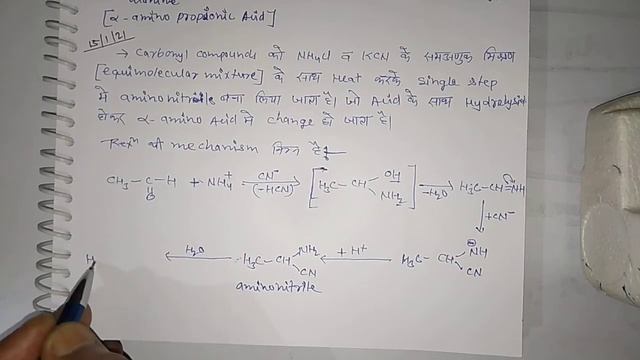 [α-amino propionic Acid]
15/1/21
→ Carbonyl compounds को NH4Cl व KCN के समअणुक मिश्रण
[equimolecular mixture] के साथ Heat करके single step
मे aminonitrile बना लिया जाता है। जो Acid के साथ Hydrolysis
होकर α-amino Acid मे change हो जाता है।
Rexn की mechanism निम्न है:-
CH3-C-H + NH4+ CN- (-HCN) [H3C-CH OH NH2] -H2O H3C-CH=NH
O +CN-
H H2O H3C-CH NH2 CN +H+ H3C-CH NH CN
aminonitrile